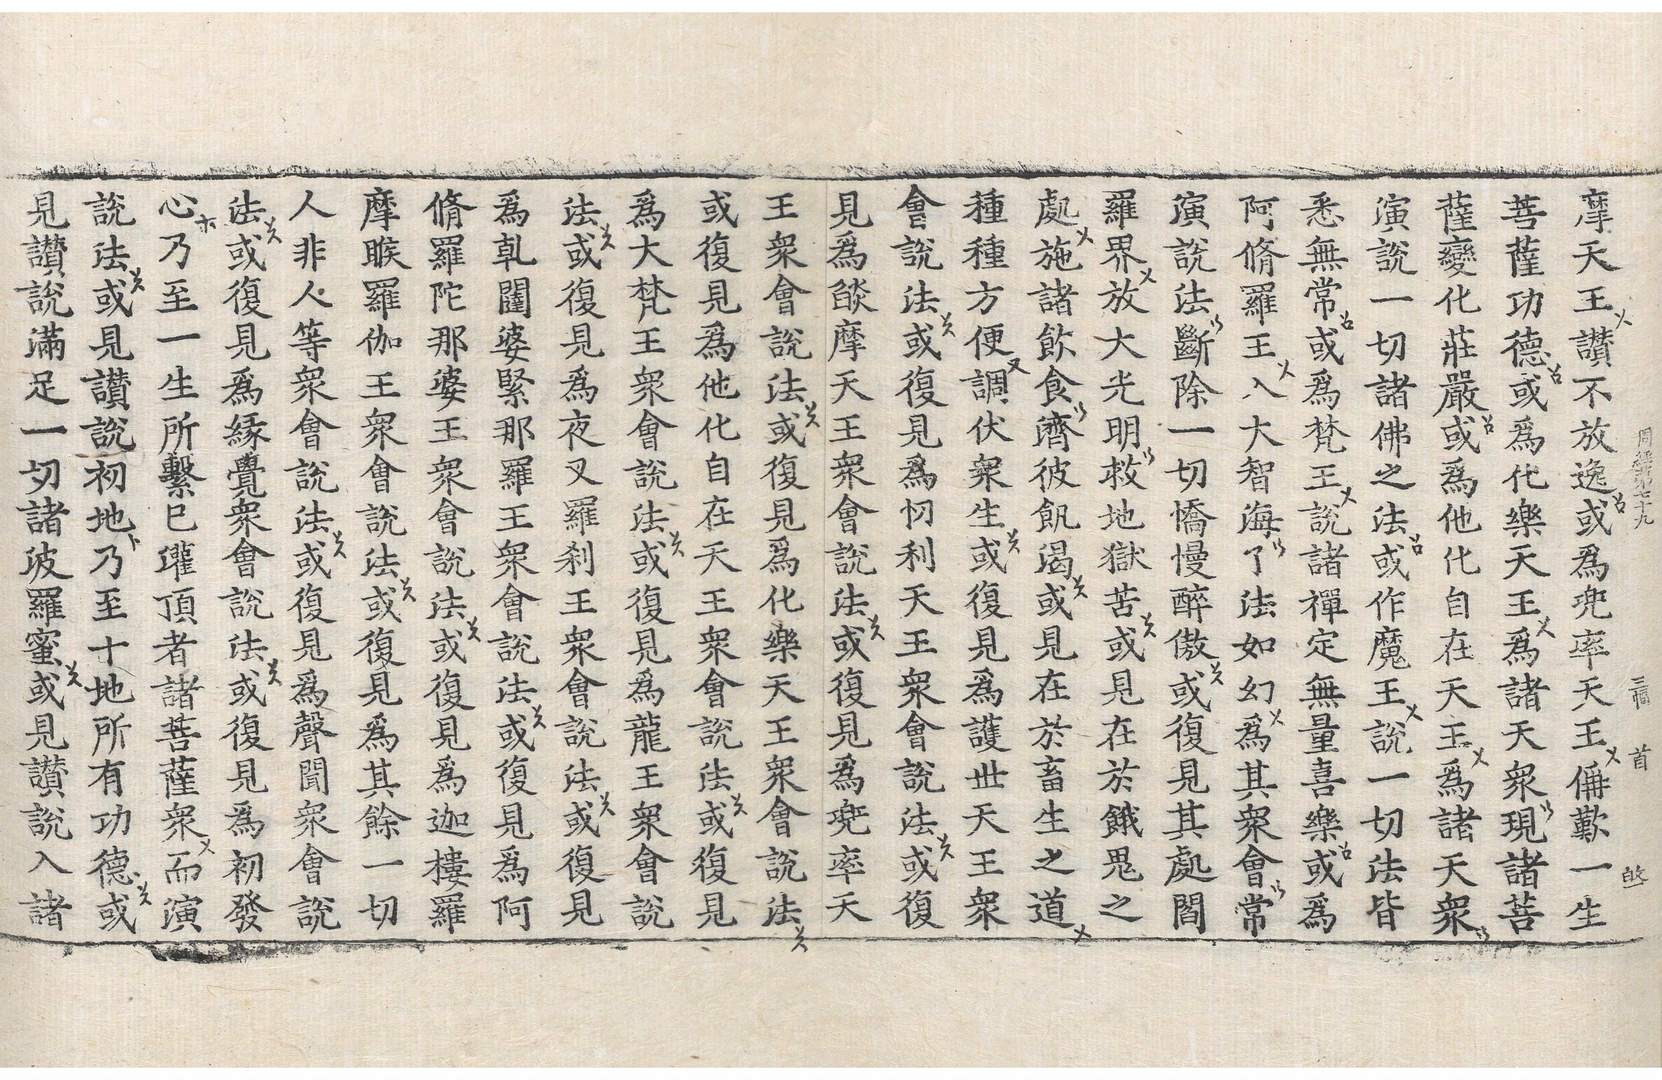 摩天王讃不放逸或爲兜率天王偁歎一生
菩薩功德或爲化樂天王爲諸天衆現諸菩
薩變化莊嚴或爲他化自在天王爲諸天衆
演說一切諸佛之法或作魔王說一切法皆
悉無常或爲梵王說諸禪定無量喜樂或爲
阿脩羅王入大智海了法如幻爲其衆會常
演說法斷除一切憍慢醉傲或復見其處閻
羅界放大光明救地獄苦或見在於餓鬼之
處施諸飲食濟彼飢渴或見在於畜生之道
種種方便調伏衆生或復見爲護世天王衆
會說法或復見爲忉利天王衆會說法或復
見爲燄摩天王衆會說法或復見爲兜率天
王衆會說法或復見爲化樂天王衆會說法
或復見爲他化自在天王衆會說法或復見
爲大梵王衆會說法或復見爲龍王衆會說
法或復見爲夜叉羅刹王衆會說法或復見
爲乹闥婆緊那羅王衆會說法或復見爲阿
脩羅陀那婆王衆會說法或復見爲迦樓羅
摩睺羅伽王衆會說法或復見爲其餘一切
人非人等衆會說法或復見爲聲聞衆會說
法或復見爲縁覺衆會說法或復見爲初發
心乃至一生所繫巳灌頂者諸菩薩衆而演
說法或見讃說初地乃至十地所有功德或
見讃說滿足一切諸波羅蜜或見讃說入諸
周經第七十九 三 首